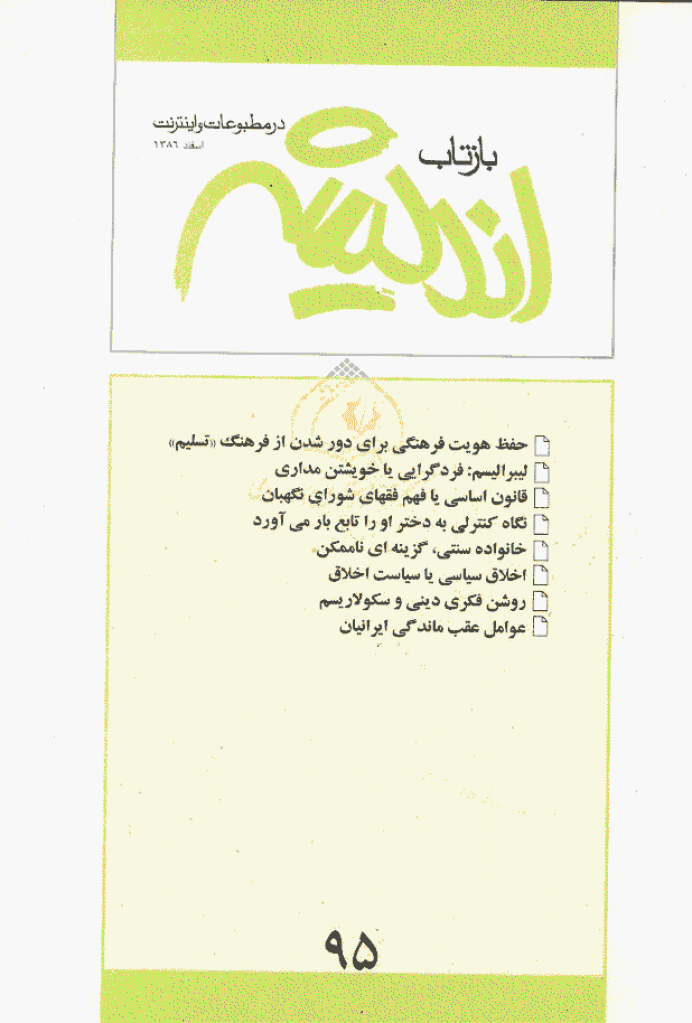 بازتاب
اندیشه
در مطبوعات و اینترنت
اسفند ۱۳۸۶
حفظ هویت فرهنگی برای دور شدن از فرهنگ «تسلیم»
لیبرالیسم: فردگرایی یا خویشتن مداری
قانون اساسی یا فهم فقهای شورای نگهبان
نگاه کنترلی به دختر او را تابع بار می آورد
خانواده سنتی، گزینه ای ناممکن
اخلاق سیاسی یا سیاست اخلاق
روشن فکری دینی و سکولاریسم
عوامل عقب ماندگی ایرانیان
۹۵